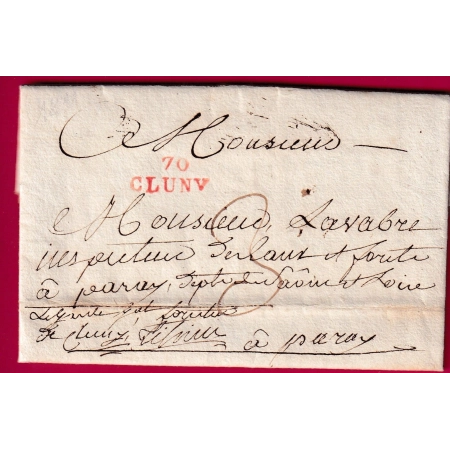 Monsieur
70
CLUNY
Monsieur Lavabre
inspecteur des Eaux et forêts
à paray, dept de Saône et Loire
Le garde
de Cluny
à paray